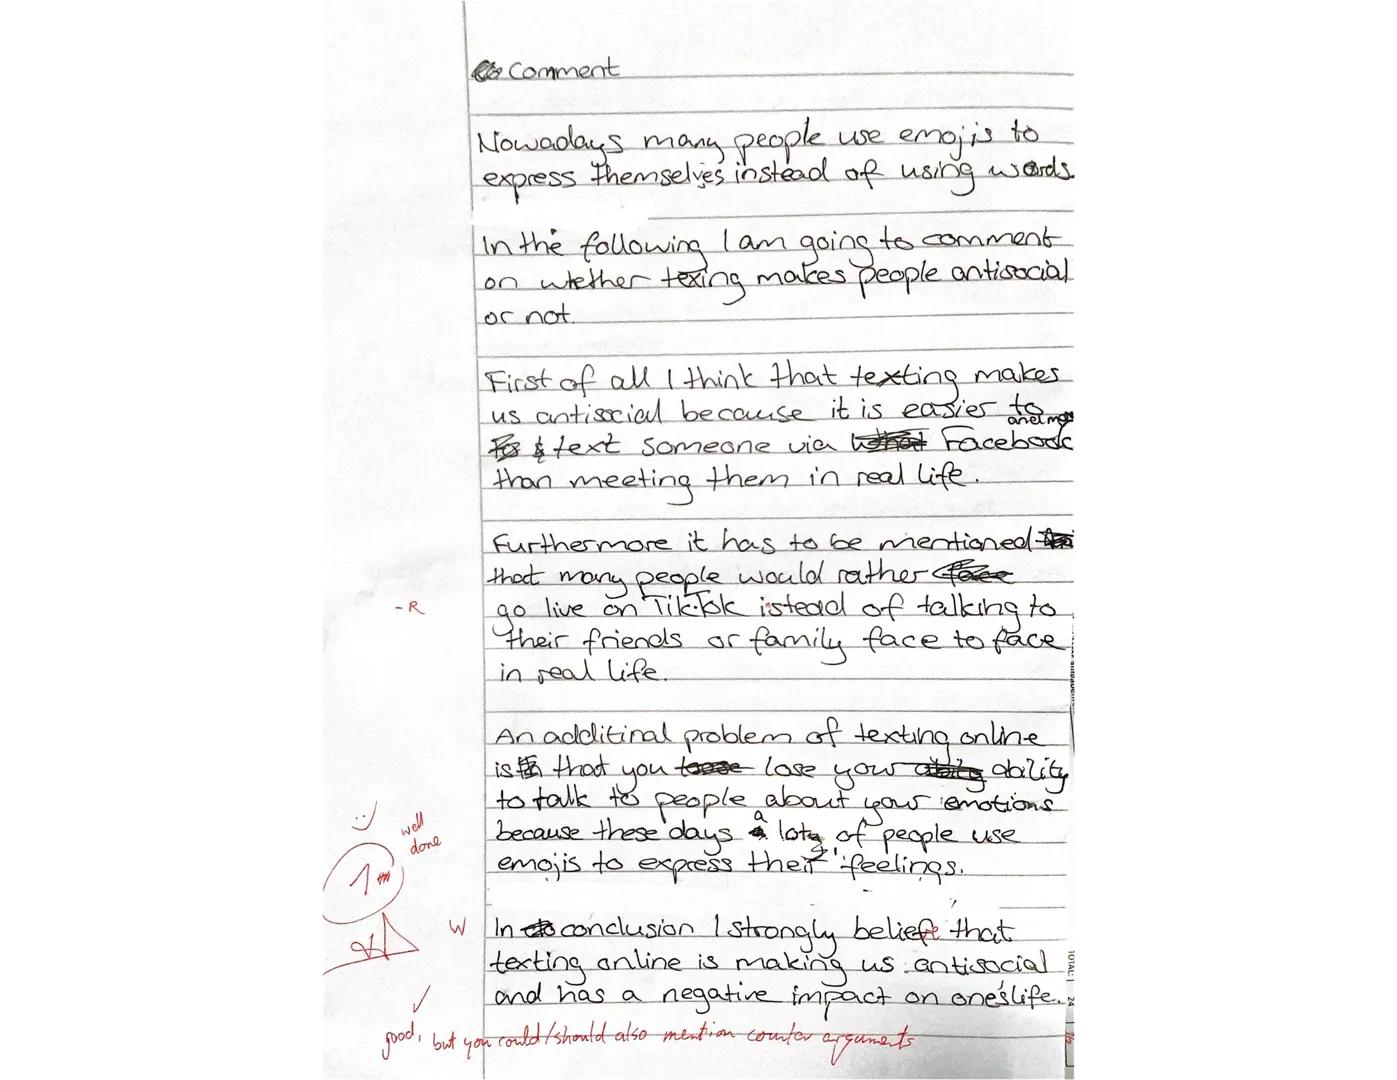 Comment
Nowadays many people use emojis to
express themselves instead of using words.
In the following I am going to comment
on wtether texing makes people antisocial
or not.
First of all I think that texting makes
us antisocial because it is easier to
text someone via Facebook
than meeting them in real life.
Furthermore it has to be mentioned
that many people would rather
- R
go live on TikTok istead of talking to
their friends or family face to face
in real life.
An additinal problem of texting online
is that you lose your ability
to talk to people about your emotions
because these days a lot of people use
emojis to express their feelings.
well
done
1
W
In conclusion I strongly believe that
texting online is making us antisocial
and has a negative impact on one's life.
good, but you could/should also mention counter arguments
TOTAL: 24